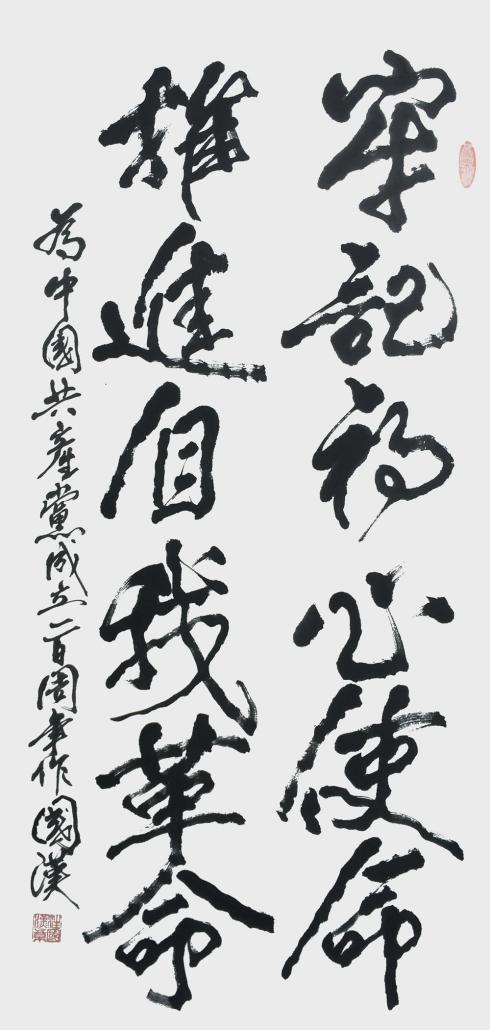 牢記初心使命
推進自我革命
為中國共産黨成立一百周年作國漢